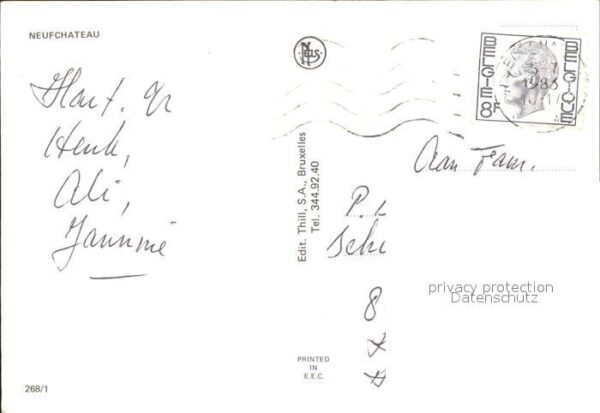 NEUFCHATEAU
NELS
BELGIE BELGIQUE
8F
1983
Hart. gr
Henk,
Ali,
Jannine
Edit. Thill, S.A., Bruxelles
Tel. 344.92.40
Aan Fam.
P.
8
privacy protection
Datenschutz
PRINTED
IN
E.E.C.
268/1